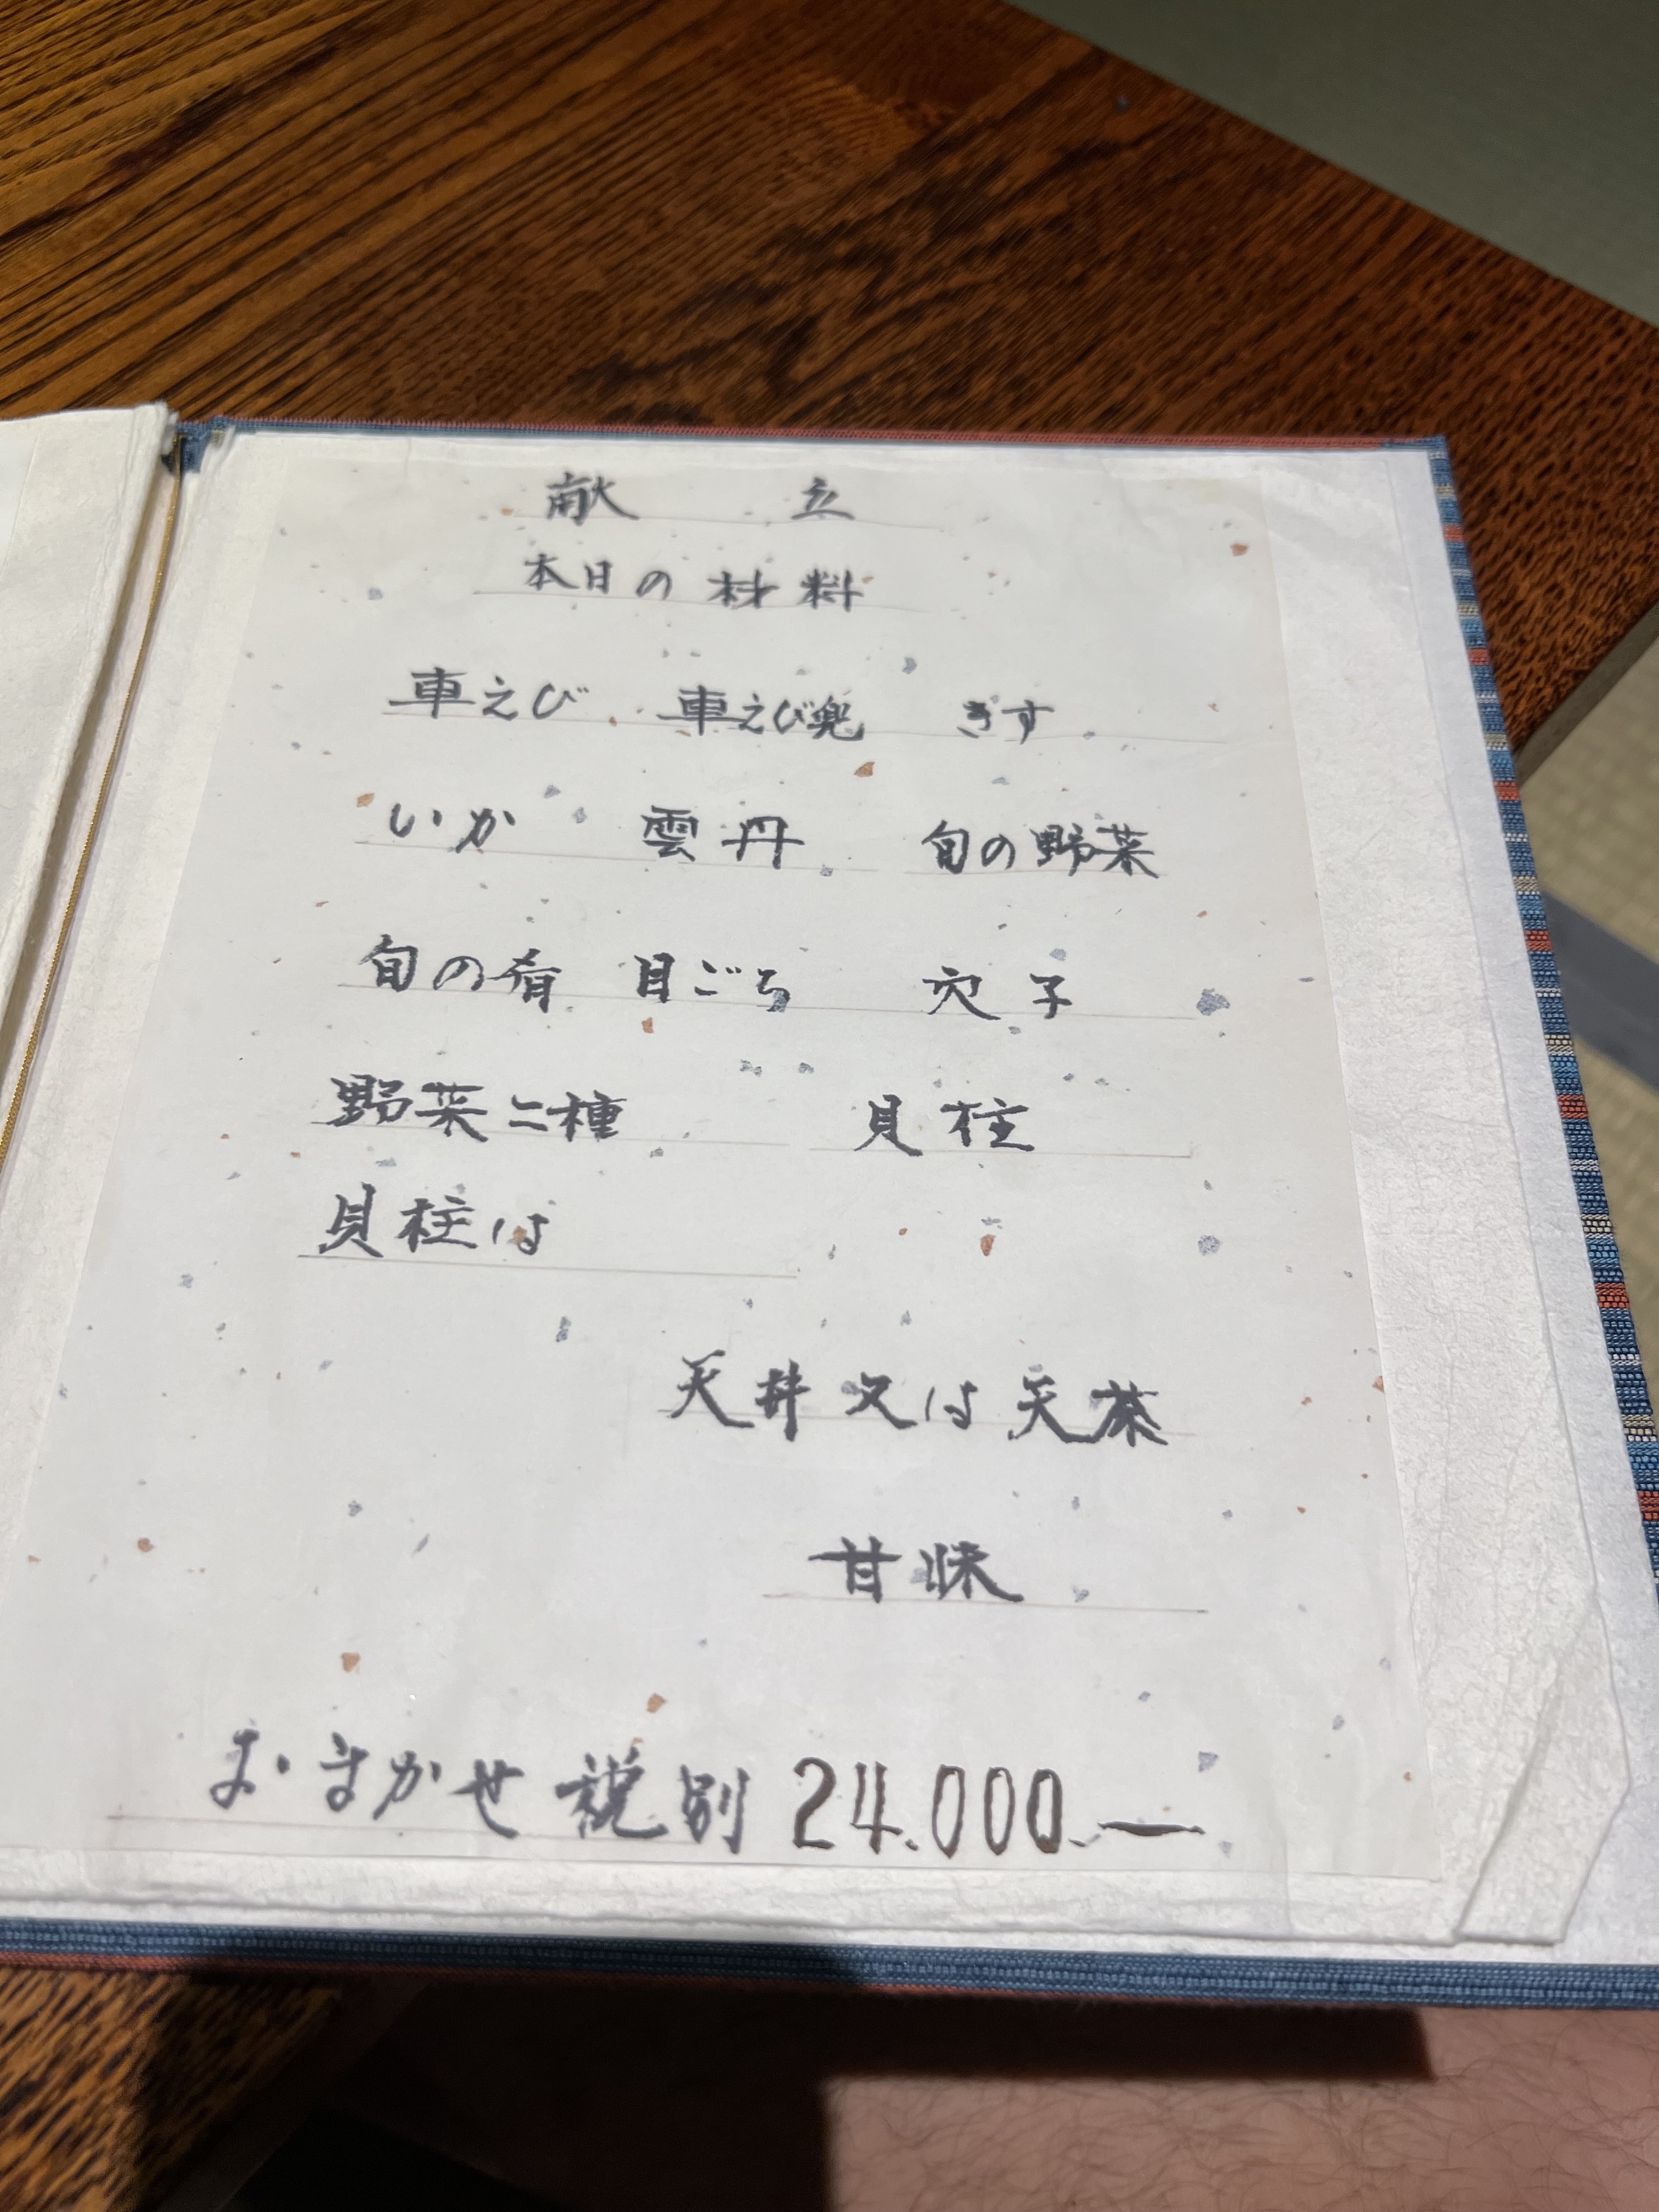 献立
本日の材料
車えび 車えび兜 ぎす
いか 雲丹 旬の野菜
旬の肴 目ごち 穴子
野菜二種 貝柱
貝柱は
天丼又は天茶
甘味
おまかせ税別 24.000.—